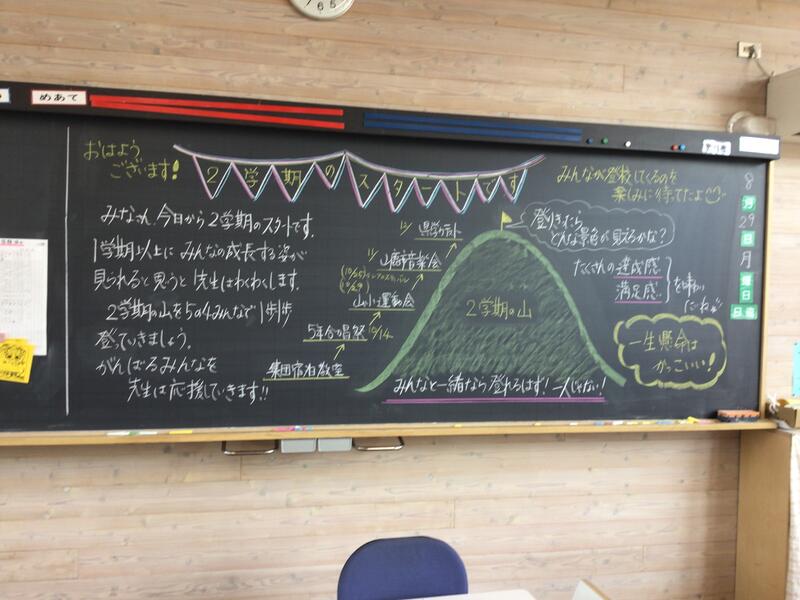 めあて
おはよう
ございます!
2学期のスタートです
みんなが登校してくるのを
楽しみに待てたよ
8
月
29
日
月
曜
日
日直
みなさん、今日から2学期のスタートです。
1学期以上にみんなの成長する姿が
見られると思うと先生はわくわくします。
2学期の山を5の4みんなで1歩1歩
登っていきましょう。
がんばるみんなを
先生は応援していきます!!
12/ 県学力テスト
11/ 音楽会
(10/25)
(10/29)
山小運動会
5年合唱祭 10/14
集団宿泊教室
登りきったら
どんな景色が見えるかな?
たくさんの達成感
満足感
を味わ
おうね
2学期の山
一生懸命は
かっこいい!
みんなと一緒なら登れるはず!一人じゃない!